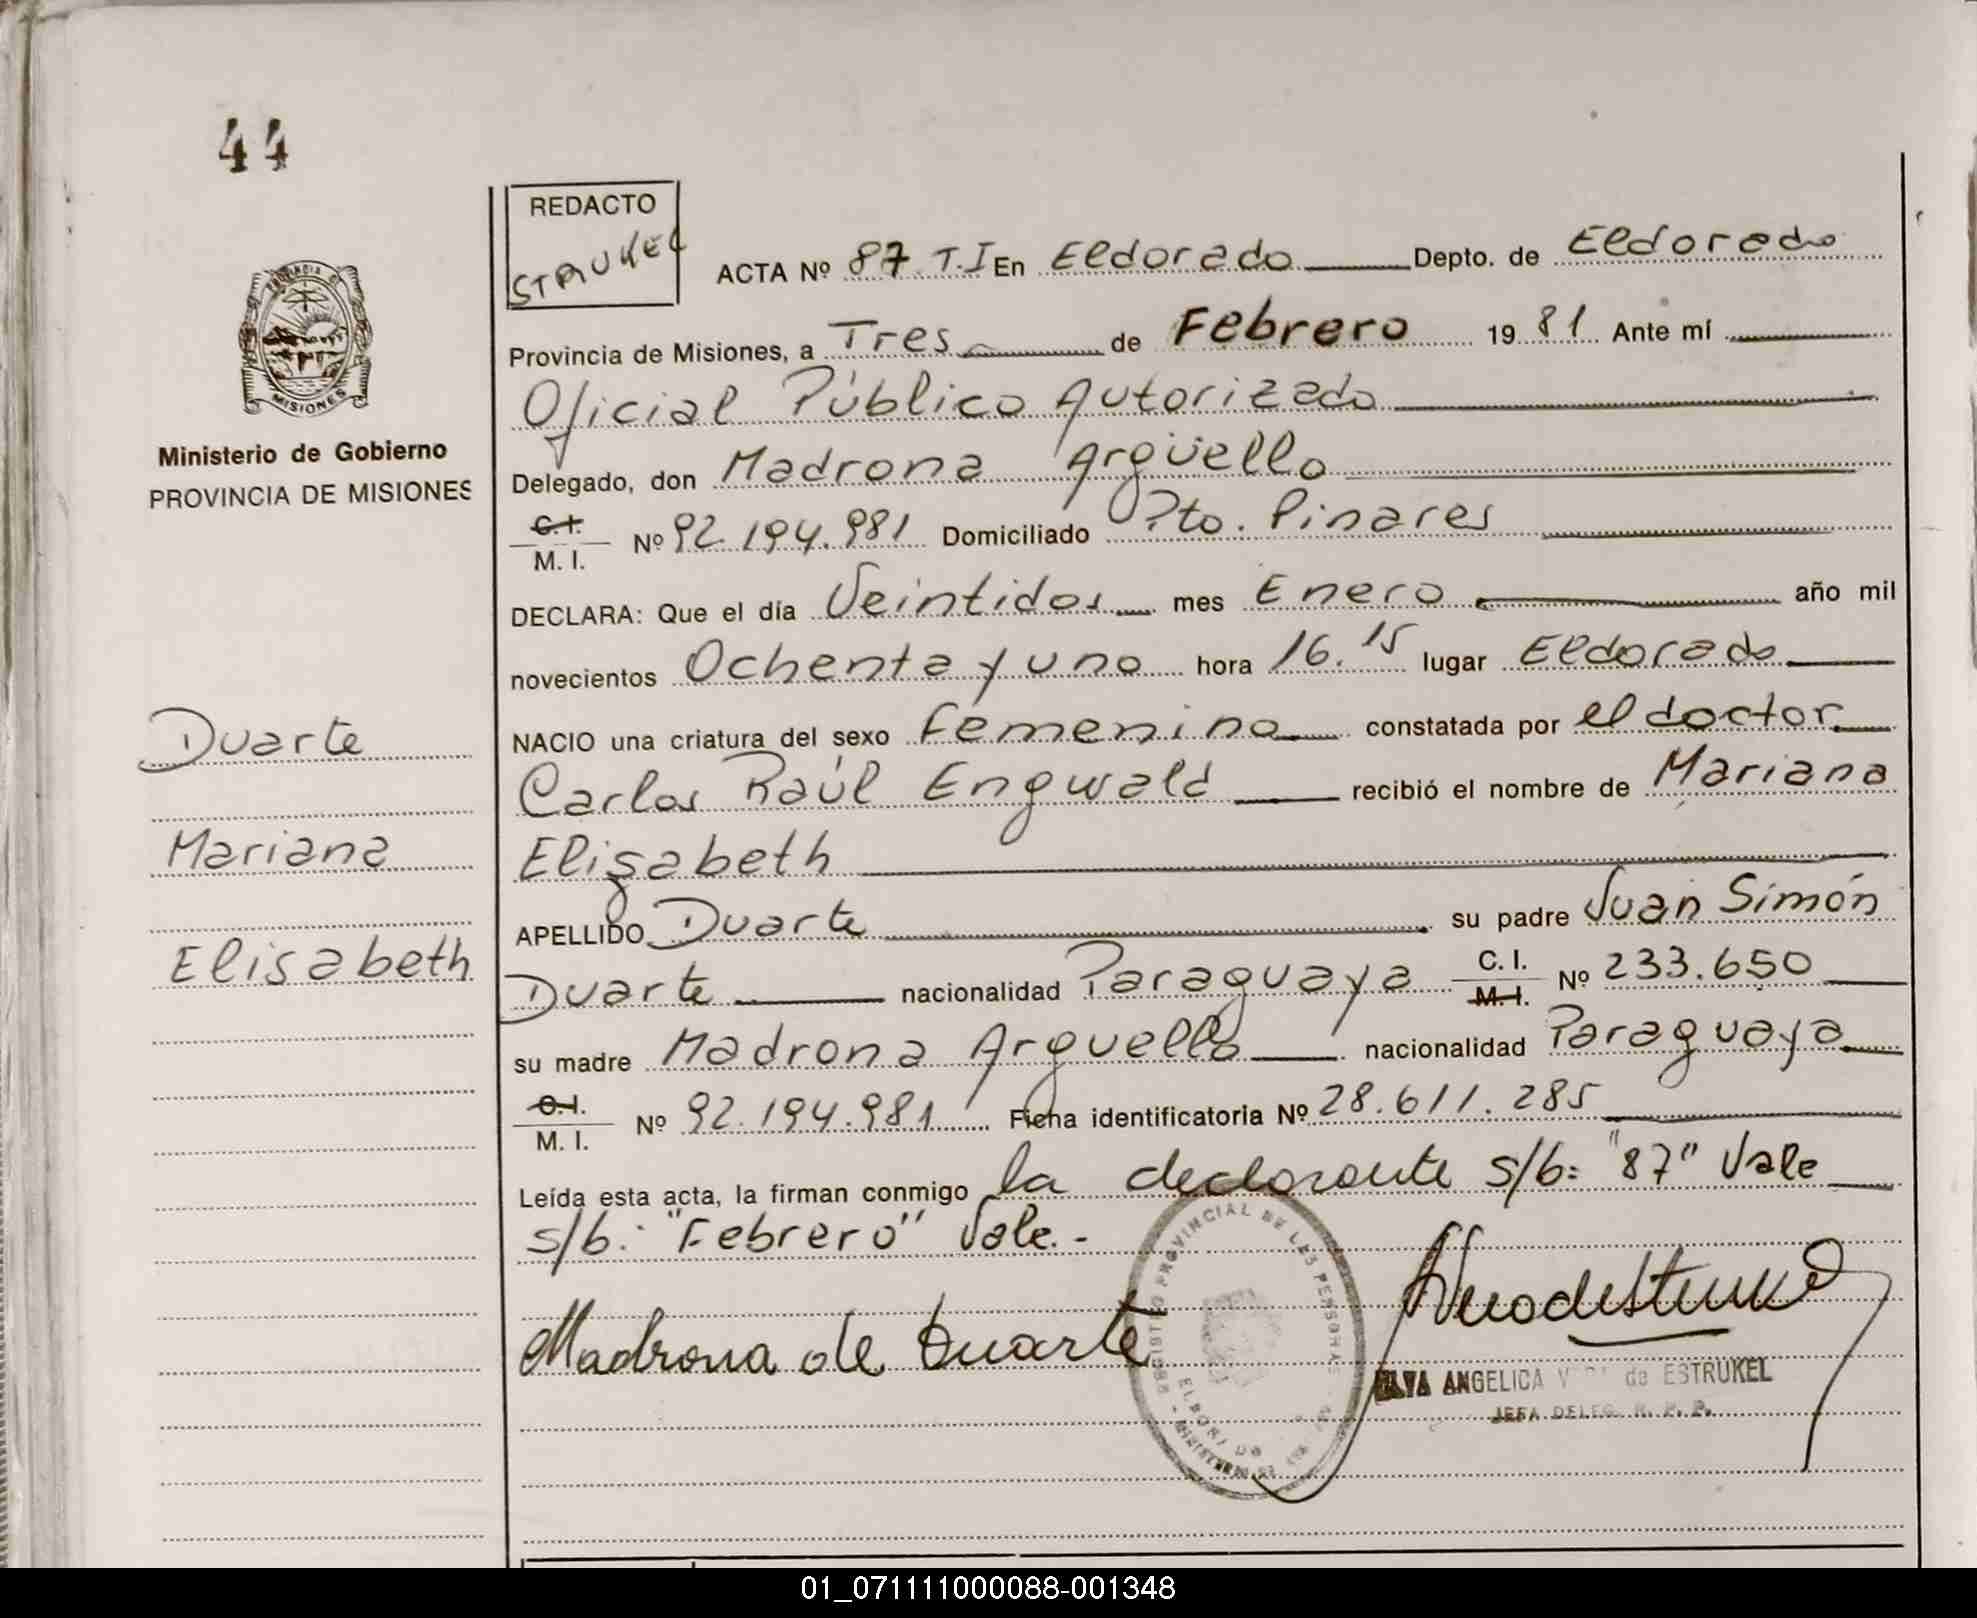 44
REDACTO
STRUKEL
ACTA Nº 87 T.I En Eldorado Depto. de Eldorado
Provincia de Misiones, a Tres de Febrero 1981 Ante mí
Oficial Público Autorizado
Delegado, don Madrona Argüello
C.I. M. I. Nº 92.194.981 Domiciliado Pto. Pinares
DECLARA: Que el día Veintidos mes Enero año mil
novecientos Ochenta y uno hora 16.15 lugar Eldorado
NACIO una criatura del sexo Femenino constatada por el doctor
Carlos Raúl Engwald recibió el nombre de Mariana
Elisabeth
APELLIDO Duarte su padre Juan Simón
Duarte nacionalidad Paraguaya C. I. M.I. Nº 233.650
su madre Madrona Arguello nacionalidad Paraguaya
C.I. M. I. Nº 92.194.981 Ficha identificatoria Nº 28.611.285
Leída esta acta, la firman conmigo la declarante s/b: "87" Vale
s/b: "Febrero" Vale.-
Madrona de Duarte
ANGELICA de ESTRUKEL
JEFA DELEG. R. P. P.
REGISTRO PROVINCIAL DE LAS PERSONAS
ELDORADO
PROVINCIA DE MISIONES
Ministerio de Gobierno
PROVINCIA DE MISIONES
Duarte
Mariana
Elisabeth
01_071111000088-001348